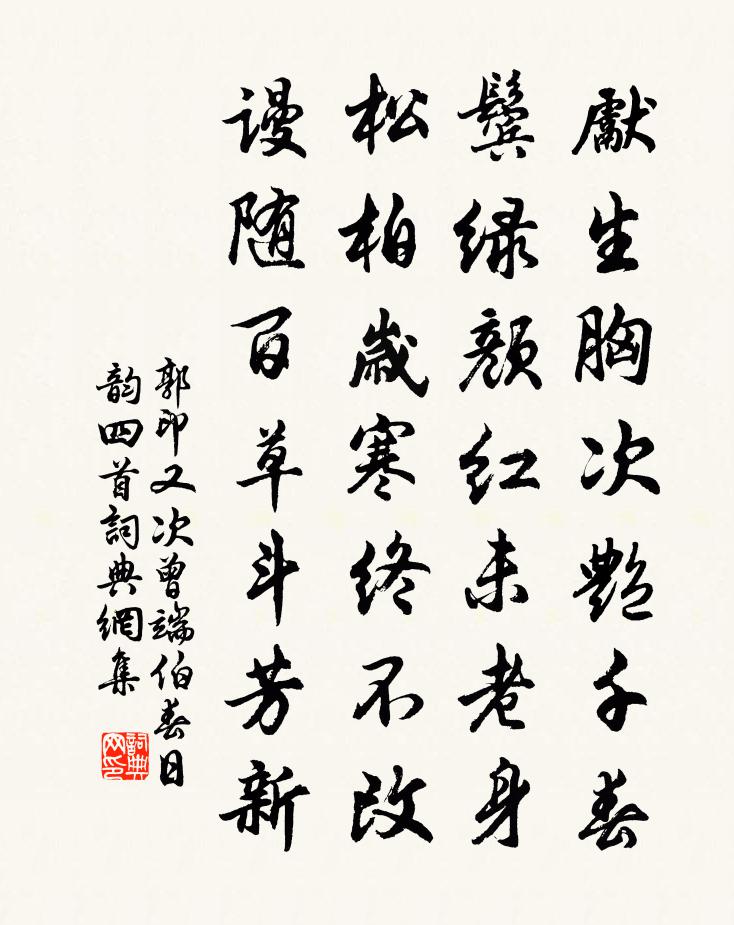 獻生胸次艷千春
鬓绿颜红未老身
松柏歲寒终不改
谩随百草斗芳新
郭印又次曾端伯春日
韵四首詞典網集
詞典网印